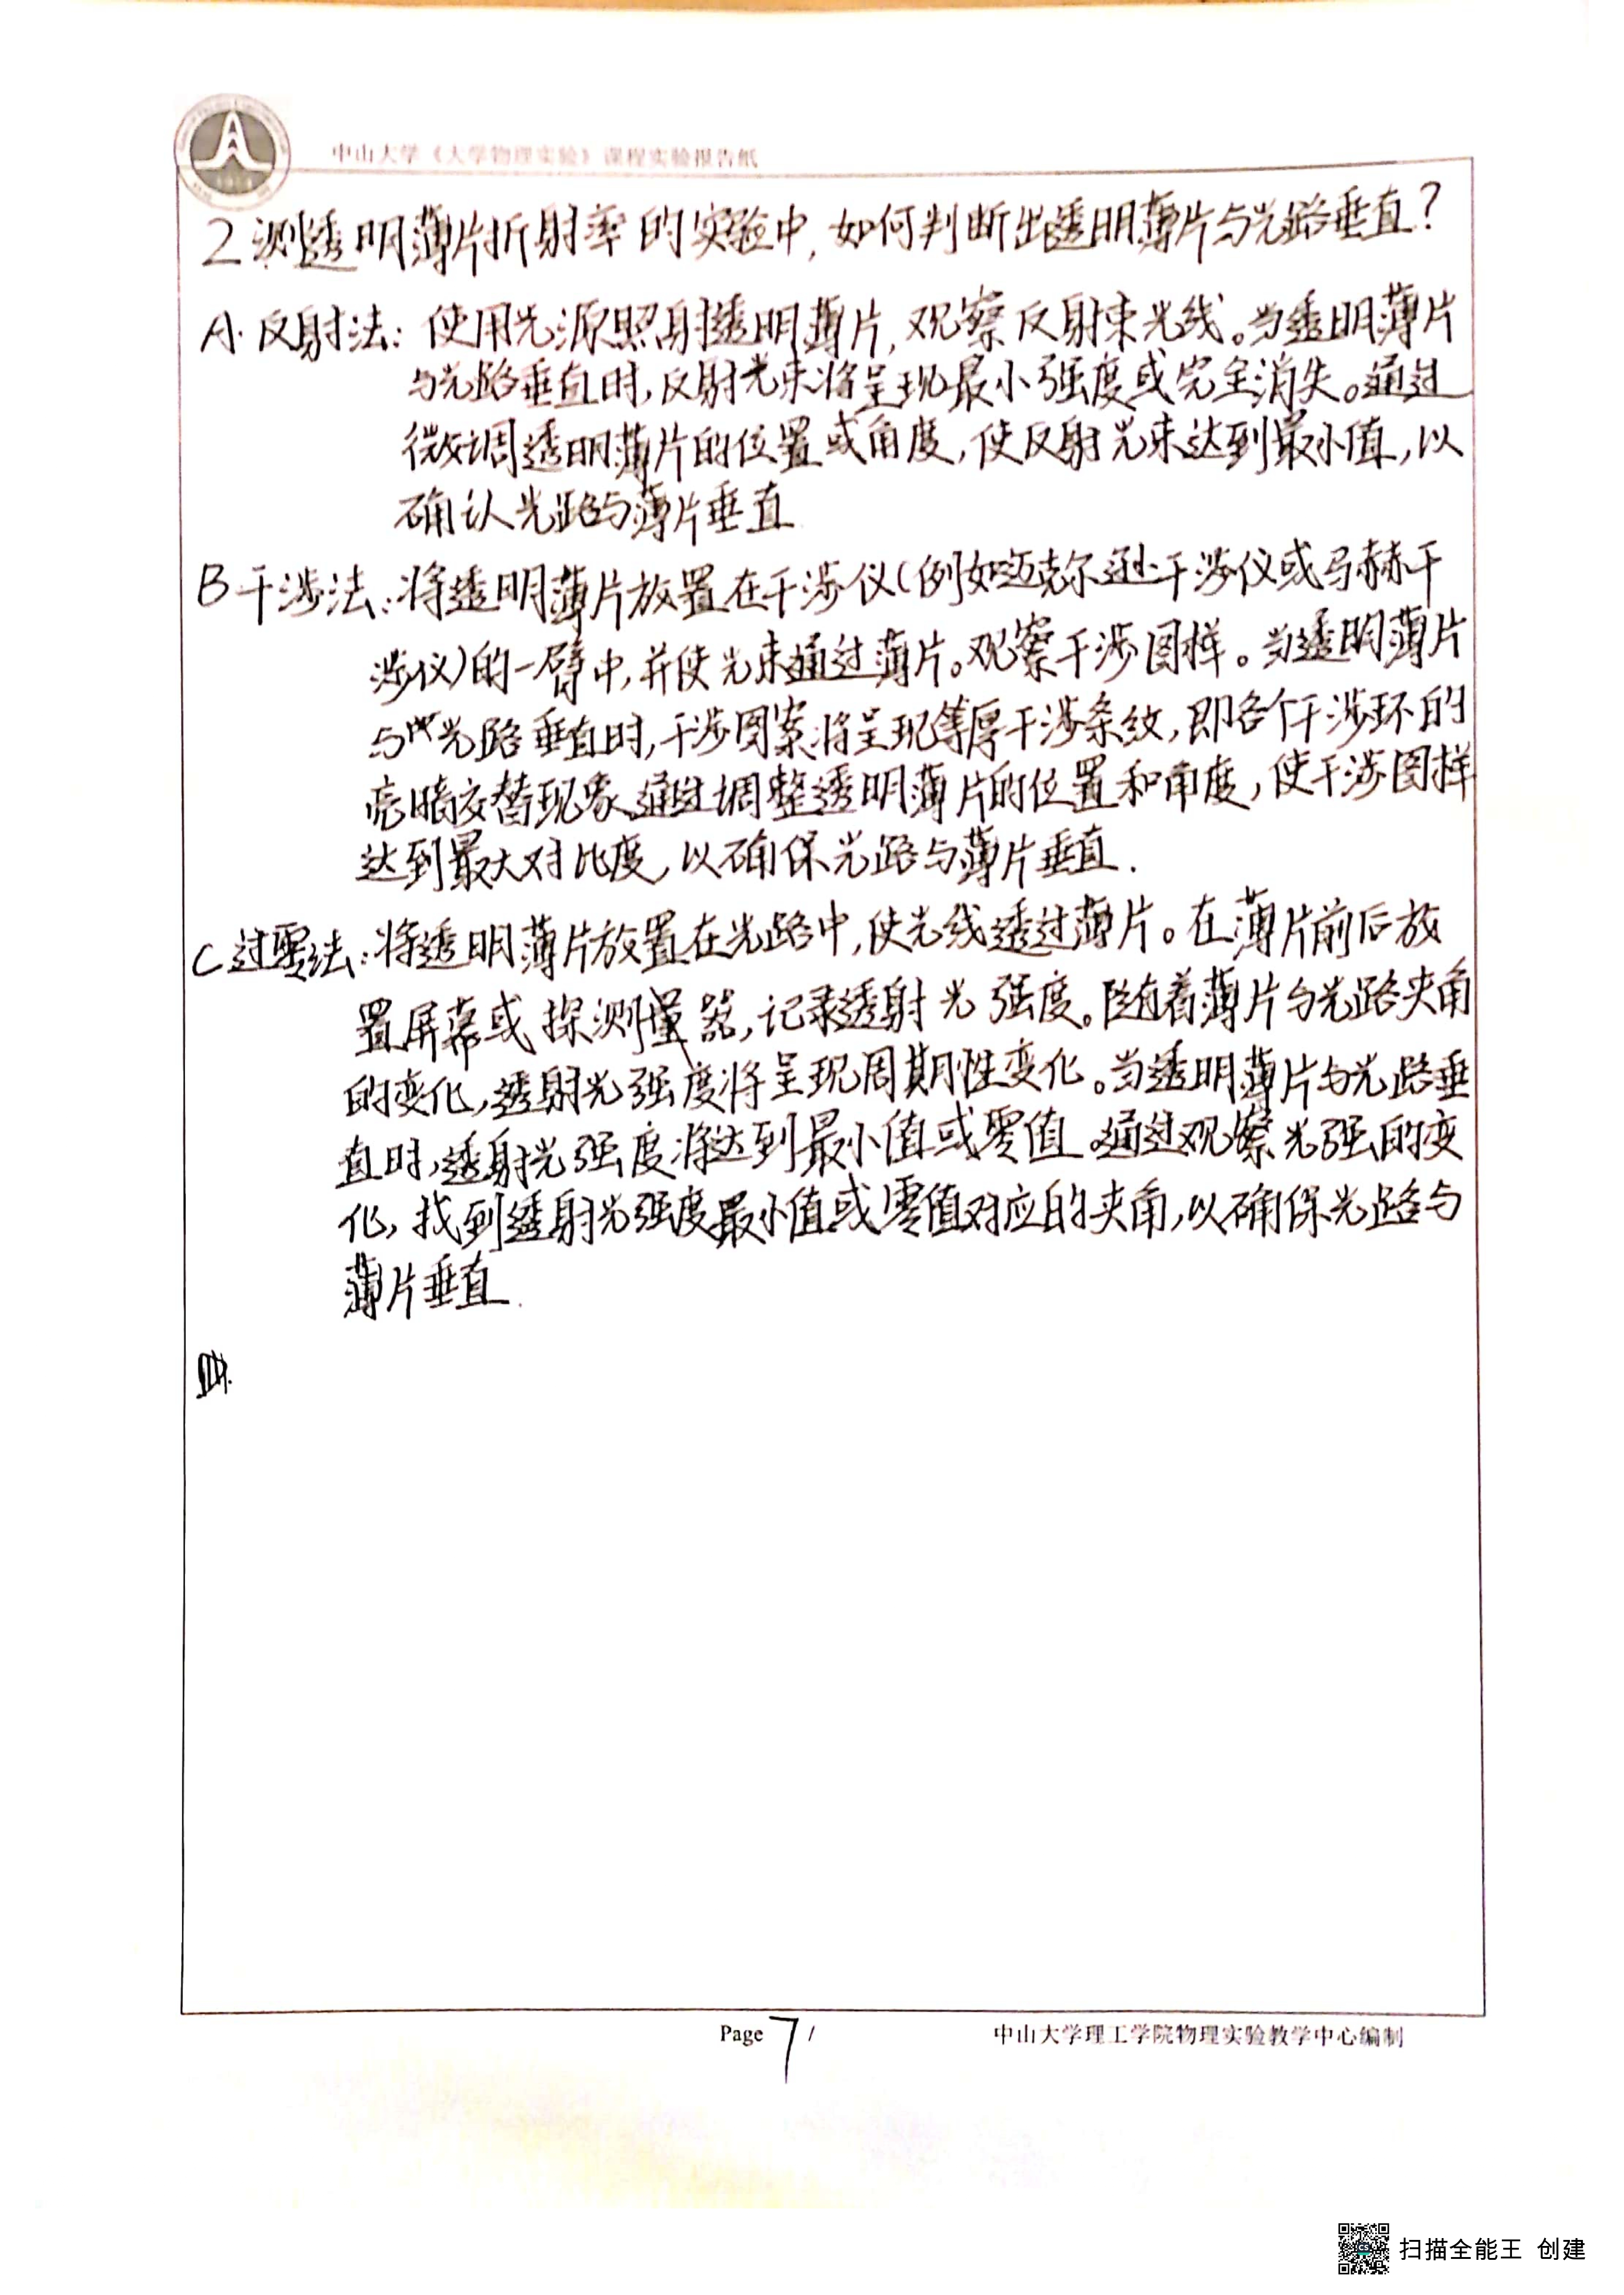 中山大学《大学物理实验》课程实验报告纸
2 测透明薄片折射率的实验中,如何判断出透明薄片与光路垂直?
A. 反射法: 使用光源照射透明薄片,观察反射束光线。当透明薄片
与光路垂直时,反射光束将呈现最小强度或完全消失。通过
微调透明薄片的位置或角度,使反射光束达到最小值,以
确认光路与薄片垂直
B 干涉法:将透明薄片放置在干涉仪(例如迈克尔逊干涉仪或马赫干
涉仪)的一臂中,并使光束通过薄片。观察干涉图样。当透明薄片
与光路垂直时,干涉图案将呈现等厚干涉条纹,即各个干涉环的
亮暗交替现象.通过调整透明薄片的位置和角度,使干涉图样
达到最大对比度,以确保光路与薄片垂直.
C 过零法:将透明薄片放置在光路中,使光线透过薄片。在薄片前后放
置屏幕或探测器,记录透射光强度。随着薄片与光路夹角
的变化,透射光强度将呈现周期性变化。当透明薄片与光路垂
直时,透射光强度将达到最小值或零值.通过观察光强的变
化,找到透射光强度最小值或零值对应的夹角,以确保光路与
薄片垂直.
Page 7 /
中山大学理工学院物理实验教学中心编制
扫描全能王 创建